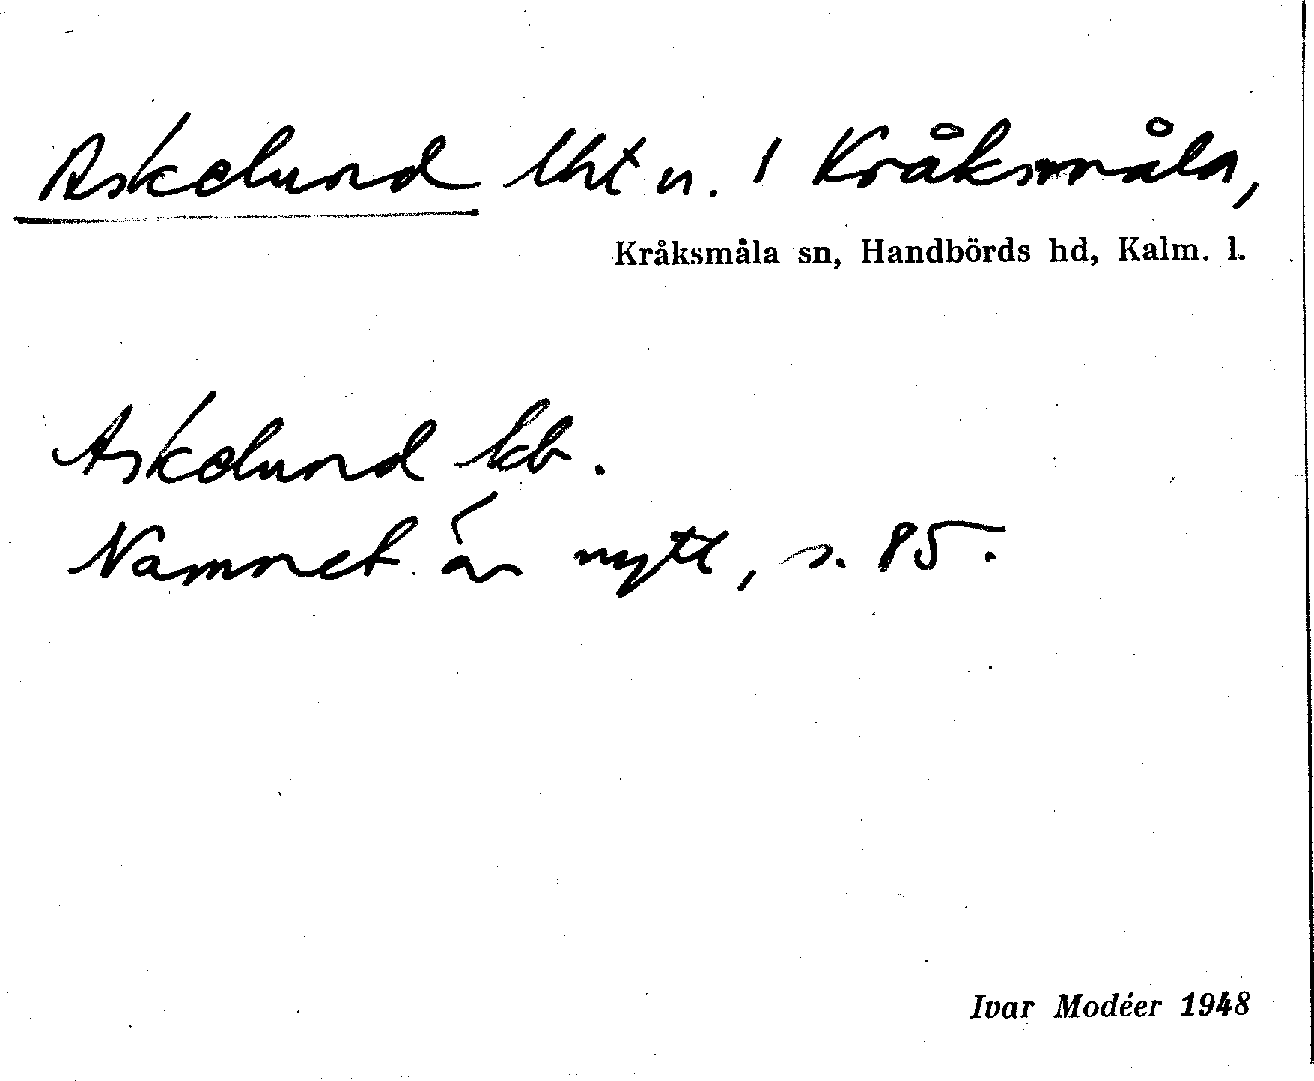 Askelund lht u. 1 Kråksmåla,
Kråksmåla sn, Handbörds hd, Kalm. l.
Askelund kb.
Namnet är nytt, s. 85.
Ivar Modéer 1948